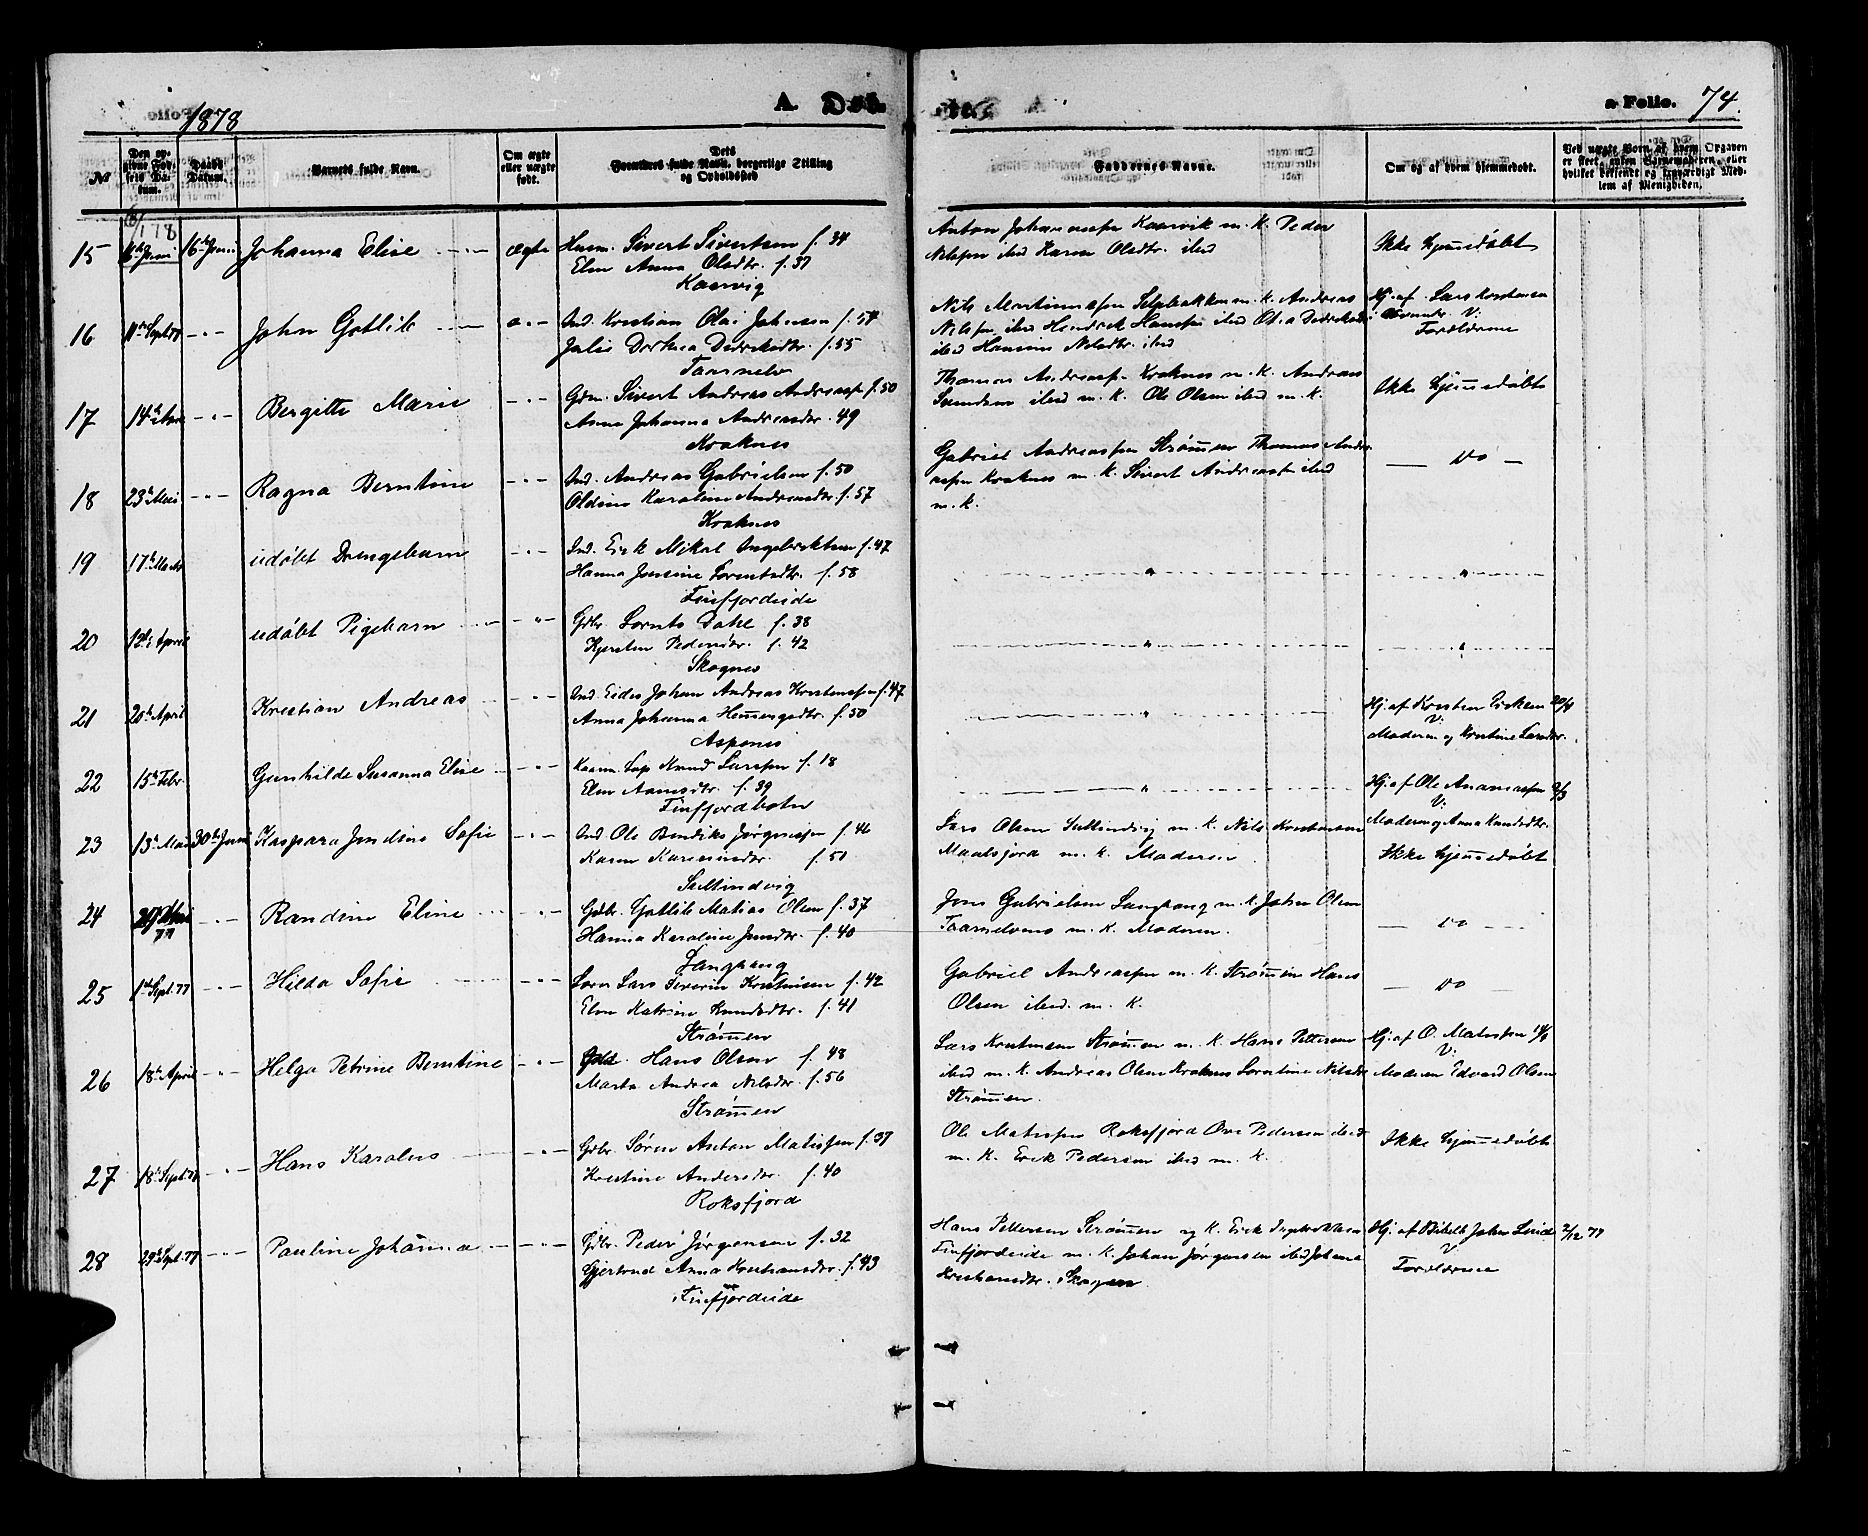 1878
A. Døb
a Folio. 74.
№
Den opgivne Fødsels Datum.
Daabs Datum.
Barnets fulde Navn.
Om ægte eller uægte født.
Dets Forældres fulde Navn, borgerlige Stilling og Opholdssted
Faddernes Navne.
Om og af hvem hjemmedøbt.
Ved uægte Born, af hvem Opgaven er skeet, enten Barnemoderen, eller hvilket bekjendt og troværdigt Medlem af Menigheden.
15 6te Juni 16de Juni Johanna Elise ægte Husm. Sivert Sivertsen f. 34
Elen Anna Olsdtr. f. 37
Kaarvig
Anton Johannessen Kaarvik m. K. Peder
Nilssen ibid Karen Olsdtr. ibid
Ikke hjemmedøbt
16 11te Sept 77 John Gotlib Ind. Kristian Olai Johnsen f. 54
Julie Dorthea Didreksdtr. f. 55
Taarnelv
Nils Martinussen Selgbakken m. K. Andreas
Nilssen ibid Hendrik Hanssen ibid Olea Dedreksdtr
ibid Hansine Nilsdtr. ibid
Hj. af Lars Korstensen
V:
Forældrene
17 14de Bergitte Marie Gdm. Sivert Andreas Andreassen f. 50
Anne Johanna Andreasdtr. 49
Kraknes
Thomas Andreassen Kraknes m. K. Andreas
Svendsen ibid m. K. Ole Olsen ibid m. K.
Ikke hjemmedøbt
18 23de Mai Ragna Berntine Ind. Andreas Gabrielsen f. 50
Oldine Karoline Andreasdtr. f. 57
Kraknes
Gabriel Andreassen Strømmen Thomas Andre
assen Kraknes m. K. Sivert Andreassen ibid
m. K.
do
19 17de Marts udøbt Drengebarn Ind. Erik Mikal Ingebrigtsen f. 47
Hanna Jensine Torrestdtr. f. 58
Finfjordeide
20 12te April udøbt Pigebarn Gdbr. Lornts Dahl f. 38
Kjersten Pedersdtr. f. 42
Skognes
21 20de April Kristian Andreas Ind. Eider Johan Andreas Kristenssen f. 47
Anna Johanna Hemmingsdtr. f. 50
Aspenes
Hj. af Kresten Eriksen 20/4
V:
Moderen og Kristine Larsdtr.
22 15de Febr. Gunhilde Susanna Elise Lap Knud Larssen f. 18
Elen Aamosdtr f. 39
Finfjordbotn
Hj. af Ole Ananiassen 2/3
V:
Moderen og Anna Knudsdtr.
23 13de Mai 30te Juni Kaspara Jendine Sofie Ind Ole Bendiks Jørgensen f. 46
Karen f. 51
Sultindvig
Lars Olsen Sultindvig m. K. Nils Kristensen
Maalsjord m. K. Moderen
Ikke hjemmedøbt
24 77 Randine Eline Gdbr. Gotlib Matias Olsen f. 37
Hanna Karoline Jensdtr. f. 40
Langhaug
Jens Gabrielsen Langhaug m. K. John Olsen
Taarnelvens m. K. Moderen.
do
25 1ste Sept. 77 Hilda Sofie Lars Severin Kristensen f. 42
Elen Katrine Knudsdtr. f. 41
Strømmen
Gabriel Andreassen m. K. Strømmen Hans
Olsen ibid. m. K.
do
26 18de April Helga Petrine Berntine Hans Olsen f. 48
Marta Andrea Nilsdtr. f. 56
Strømmen
Lars Kristensen Strømmen m. K. Hans Pettersen
ibid m. K. Andreas Olsen Kraknes Lorentine Nilsdtr
Strømmen.
Hj. af O. Matissen
V:
Moderen Edvard Olsen
27 18de Sept. 77 Hans Karolus Gdbr. Søren Anton Matissen f. 37
Kristine Andersdtr. f. 40
Roksfjord
Ole Matissen Roksfjord Ove Pedersen ibid
m. K. Erik Pedersen ibid m. K.
Ikke hjemmedøbt
28 29de Sept. 77 Pauline Johanna Gdbr. Peder Jørgensen f. 32
Gjertrud Anna Kristiansdtr. f. 43
Finfjordeide
Hans Pettersen Strømmen og K. Erik Ingebrektsen
Finfjordeide m. K. Johan Jørgensen ibid Johanna
Kristiansdtr. Skogen
Hj. af John Linde 2/12 77
V
Forældrene